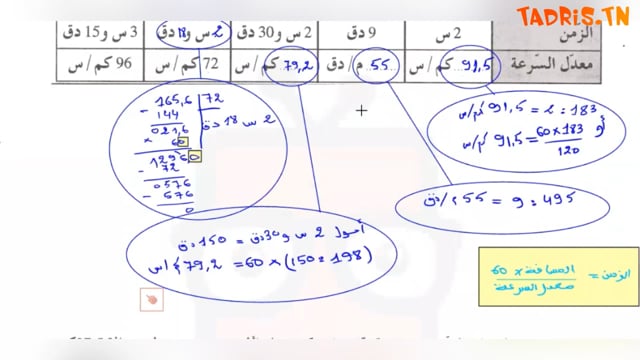 TADRIS.TN
الزمن 2 س 9 دق 2 س و30 دق 2 س و18 دق 3 س و15 دق
معدّل السّرعة 91,5 كم/س 55 م/دق 79,2 كم/س 72 كم/س 96 كم/س
165,6 72
- 144
021,6 2 س 18 دق
× 60
1296 0
- 72
0576
- 576
0
183 : 2 = 91,5 كم/س
أو 60 × 183 / 120 = 91,5 كم/س
495 : 9 = 55 م/دق
أحول 2 س و30 دق = 150 دق
(198 : 150) × 60 = 79,2 كم/س
الزمن = المسافة × 60 / معدل السرعة